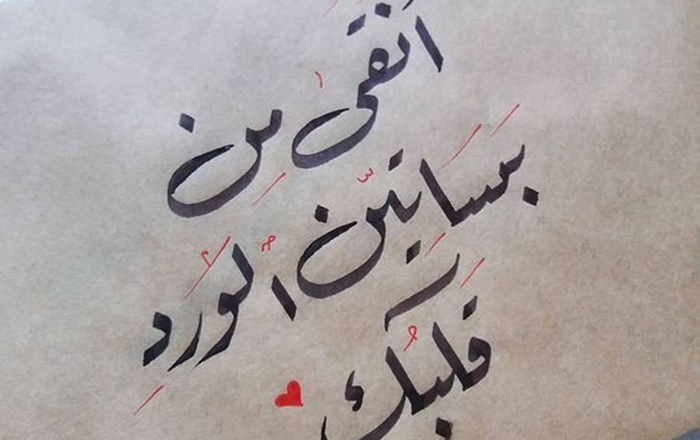 أنقىٰ من
بَسَاتِين
ٱلوَردِ
قَلبُك